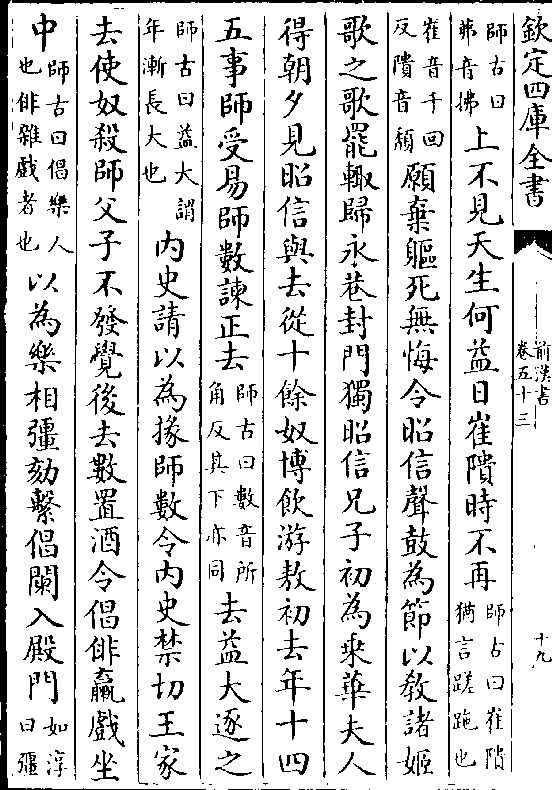 欽定四庫全書
前漢書
卷五十三
十九
師古曰
茀音拂
上不見天生何益日崔隤時不再
師古曰崔隤
猶言蹉跎也
崔音千回
反隤音頽
願棄軀死無悔令昭信聲鼓為節以敎諸姬
歌之歌罷輙歸永巷封門獨昭信兄子初為乗華夫人
得朝夕見昭信與去從十餘奴博飲游敖初去年十四
五事師受易師數諫正去
師古曰數音所
角反其下亦同
去益大逐之
師古曰益大謂
年漸長大也
内史請以為掾師數令内史禁切王家
去使奴殺師父子不發覺後去數置酒令倡俳臝戲坐
中
師古曰倡樂人
也俳雜戲者也
以為樂相彊劾繫倡闌入殿門
如淳
曰彊